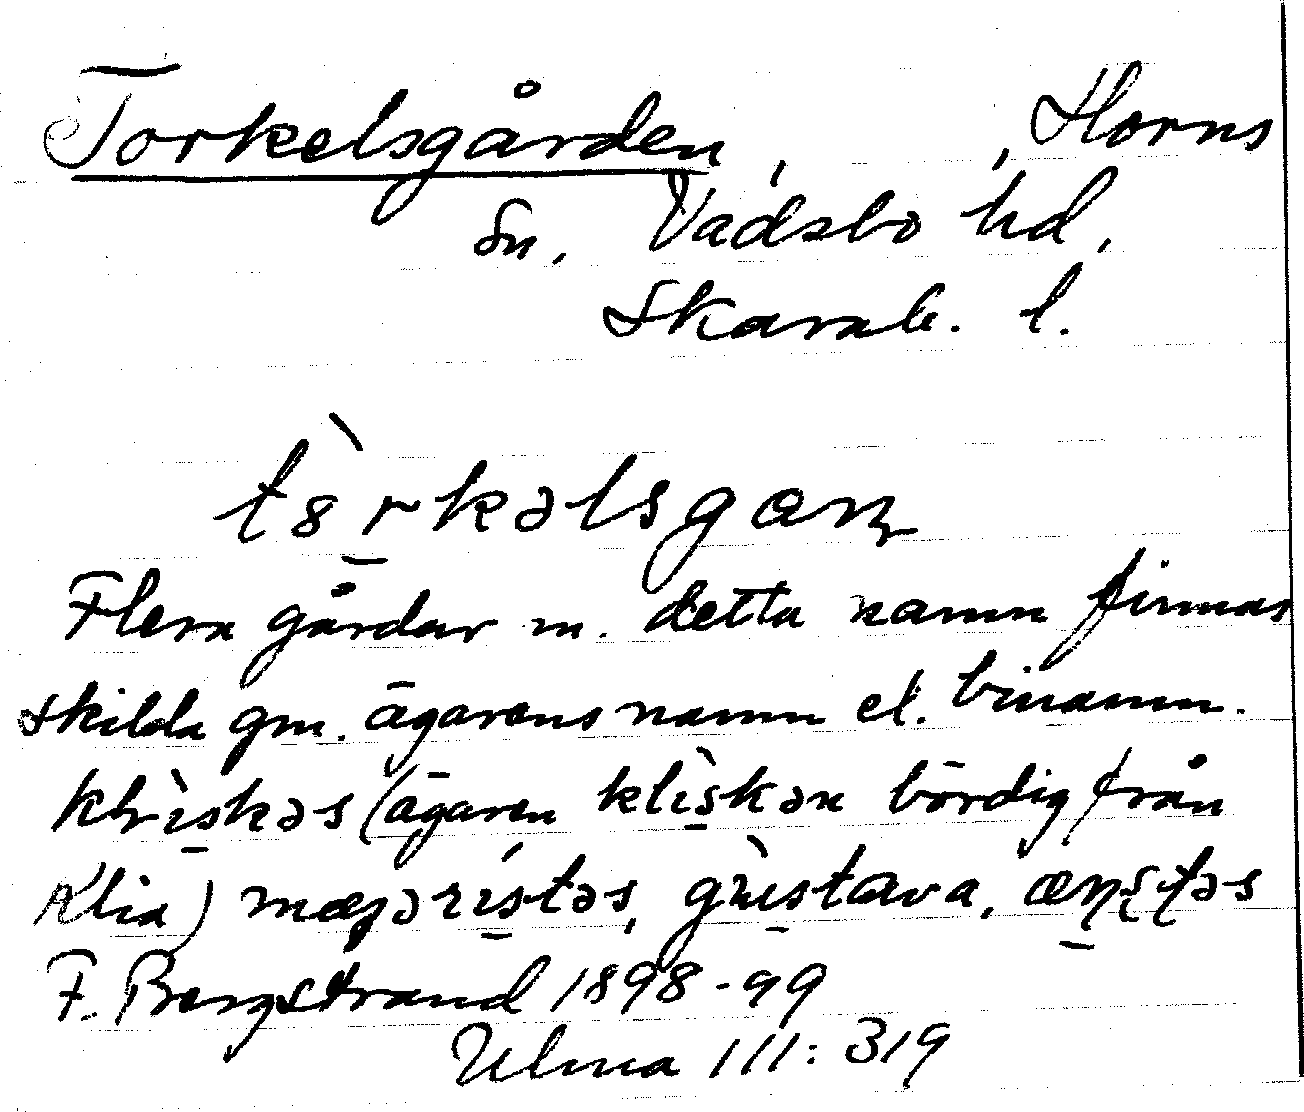 Torkelsgården, , Horns
Sn. Vadsbo hd,
Skarab. l.
tȣ̀rkəlsgaɳ
Flera gårdar m. detta namn finnas
skilda gm. ägarens namn el. binamn.
klìskəs (ägaren klìskən bördig från
Klia) mæjərístəs, gùstava, æɳʂʈəs
F. Bergstrand 1898-99
Ulma 111:319